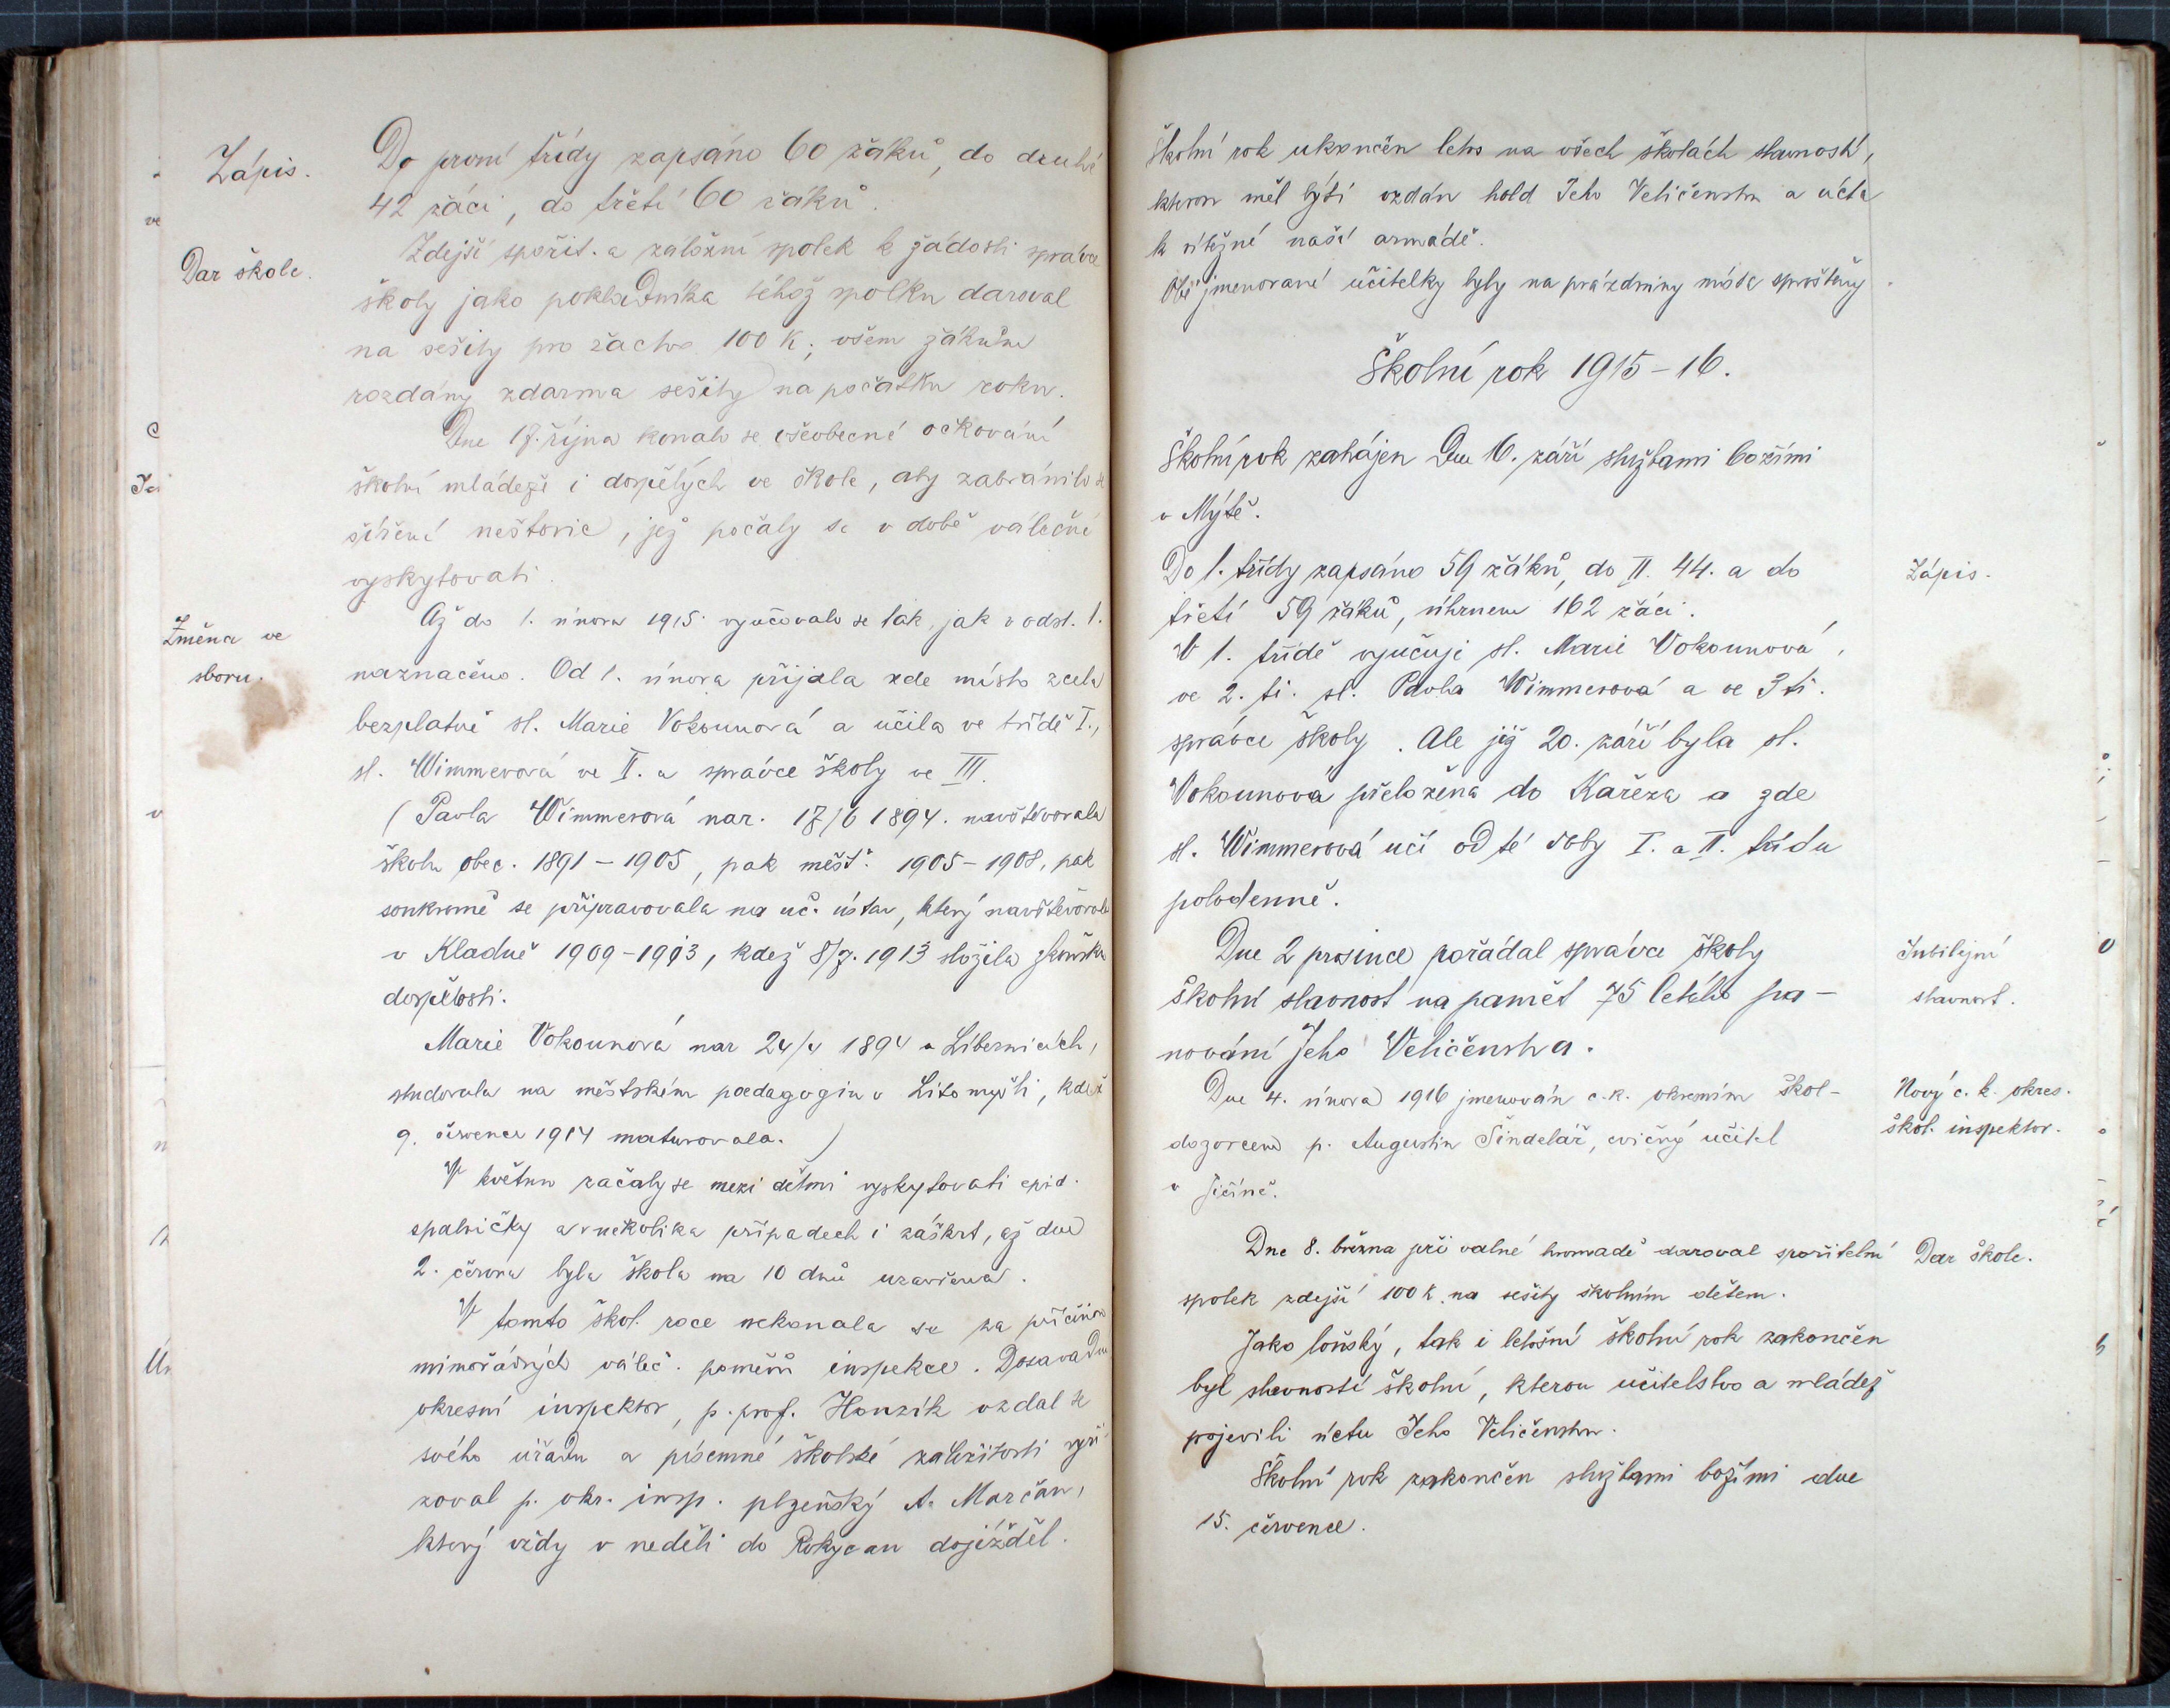 Zápis.
Do první třídy zapsáno 60 žáků, do druhé
42 žáci, do třetí 60 žáků.
Dar škole.
Zdejší spořit. a záložní spolek k žádosti správce
školy jako pokladníka téhož spolku daroval
na sešity pro žactvo 100 K; všem žákům
rozdány zdarma sešity na počátku roku.
Dne 17. října konalo se všeobecné očkování
školní mládeže i dospělých ve škole, aby zabránilo se
šíření neštovic, jež počaly se v době válečné
vyskytovati.
Změna ve
sboru.
Až do 1. února 1915 vyučovalo se tak, jak v odst. 1.
naznačeno. Od 1. února přijala zde místo zcela
bezplatně sl. Marie Vokounová a učila ve třídě I.,
sl. Wimmerová ve II. a správce školy ve III.
(Pavla Wimmerová nar. 17/6 1894. navštěvovala
školu obec. 1891 – 1905, pak měšť. 1905 – 1908, pak
soukromě se připravovala na uč. ústav, který navštěvovala
v Kladně 1909 – 1913, kdež 8/7. 1913 složila zkoušku
dospělosti.
Marie Vokounová nar 24/4 1894 v Libernicích,
studovala na městském paedagogiu v Litomyšli, kdež
9. července 1914 maturovala.)
V květnu začaly se mezi dětmi vyskytovati epid.
spalničky a v několika případech i záškrt, až dne
2. června byla škola na 10 dnů uzavřena.
V tomto škol. roce nekonala se za příčinou
mimořádných váleč. poměrů inspekce. Dosavadní
okresní inspektor, p. prof. Honzík vzdal se
svého úřadu a písemné školské záležitosti vyři-
zoval p. okr. insp. plzeňský A. Marčan,
který vždy v neděli do Rokycan dojížděl.
Školní rok ukončen letos na všech školách slavností,
kterou měl býti vzdán hold Jeho Veličenstvu a úcta
k vítězné naší armádě.
Obě jmenované učitelky byly na prázdniny místa sproštěny.
Školní rok 1915 – 16.
Školní rok zahájen dne 16. září službami božími
v Mýtě.
Do 1. třídy zapsáno 59 žáků, do II. 44. a do
Zápis.
třetí 59 žáků, úhrnem 162 žáci.
V 1. třídě vyučuje sl. Marie Vokounová,
ve 2. tř. sl. Pavla Wimmerová a ve 3 tř.
správce školy. Ale již 20. září byla sl.
Vokounova přeložena do Kařeza a zde
sl. Wimmerová učí od té doby I. a II. třídu
polodenně.
Dne 2 prosince pořádal správce školy
Jubilejní
školní slavnost na paměť 75 letého pa-
slavnost.
nování Jeho Veličenstva.
Dne 4. února 1916 jmenován c.k. okresním škol-
Nový c. k. okres.
dozorcem p. Augustin Šindelář, cvičný učitel
škol. inspektor.
v Jičíně.
Dne 8. března při valné hromadě daroval spořitelní
Dar škole.
spolek zdejší 100 K na sešity školním dětem.
Jako loňský, tak i letošní školní rok zakončen
byl slavností školní, kterou učitelstvo a mládež
projevili úctu Jeho Veličenstvu.
Školní rok zakončen službami božími dne
15. července.